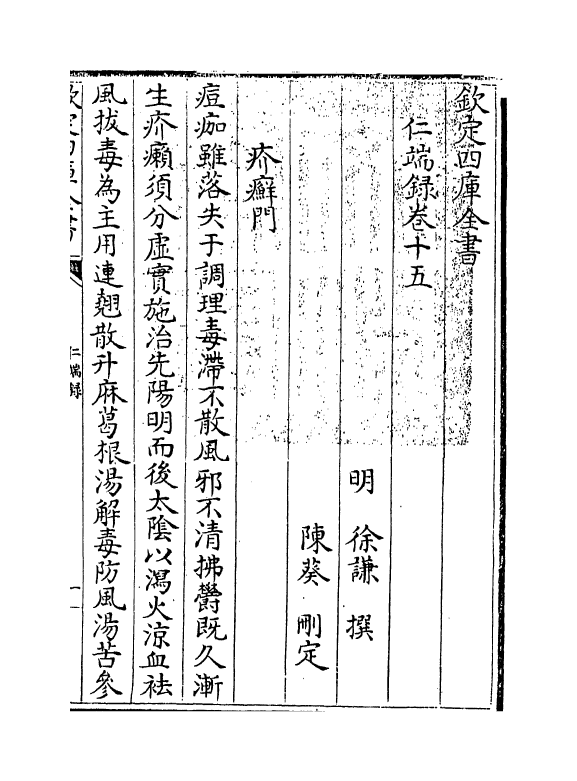 欽定四庫全書
仁端錄卷十五
明 徐謙 撰
陳葵 刪定
疥癬門
痘痂雖落失于調理毒滯不散風邪不清拂鬱既久漸
生疥癩須分虛實施治先陽明而後太陰以瀉火涼血袪
風拔毒為主用連翹散升麻葛根湯解毒防風湯苦參
欽定四庫全書
仁端錄
一